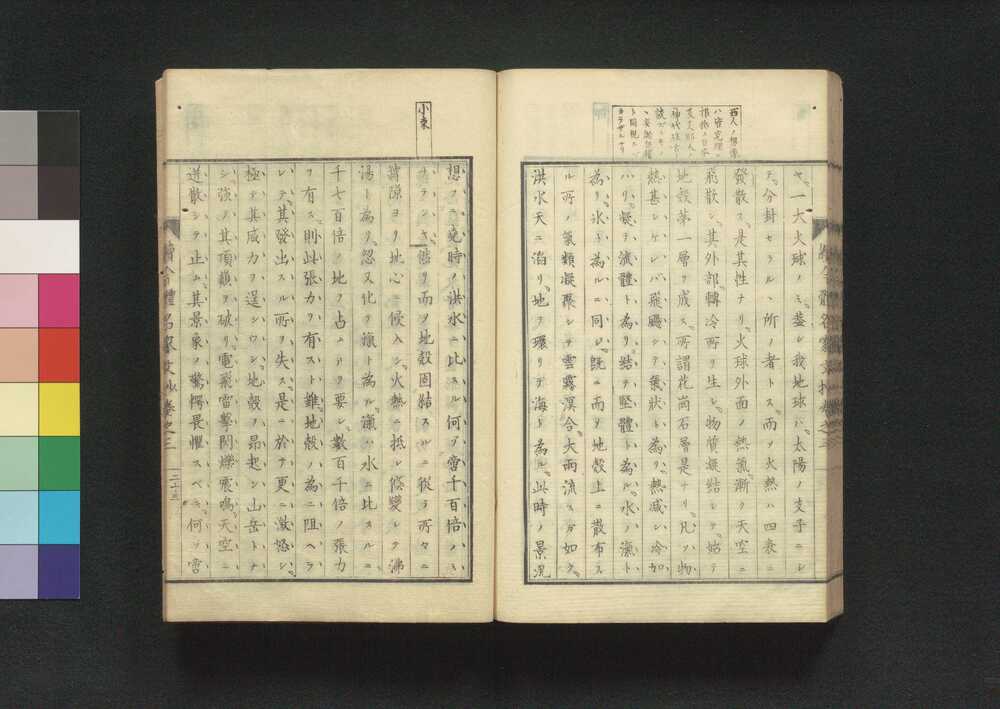 西人ノ想像
ハ皆究理ニ
根拠ス日本
及支那人ノ
神代説古
ト同視ス
ヤ一大火球ノミ蓋シ我地球ハ太陽ノ支子ニシ
テ分封セラルヽ所ノ者トス而ヲ火熱ハ四表ニ
發散ス是其性ナリ火球外面ノ熱氣漸ク天空ニ
飛散シ其外部轉冷所ヲ生シ物質凝結シテ始
地殻第一層ヲ成ス所謂花崗石層是ナリ凡ソ物
熱甚シケレバ飛騰シテ氣狀ト為リ熱減シ冷加
ハリ凝テ液體ト為リ結テ堅體ト為ル水ノ瀛ト
為リ氷ト為ルニ同シ既ニ而ヲ地殻上ニ散布ス
ル所ノ氣類凝聚シテ雲霧溟合大雨流ス
洪水天ニ滔リ地ヲ環リテ海ト為ル此時ノ景況
小東
想フニ堯時ノ洪水ニ比スル何ゾ啻千百倍ノミ
ナランヤ偕ヲ而ヲ地殻固結スルニ從ヲ所々ニ
罅隙ヨリ地心ニ侵入シ火熱ニ抵レ倏變シテ沸
湯ト為ル忽又化ヲ瀛ト為ル瀛ハ水ニ比スルニ
千七百倍ノ地ヲ占ムアヲ要シ數百千倍ノ張力
ヲ有ス則此張力ヲ有スト雖地殻ノ為ニ阻ヘラ
レテ其發出スル所ヲ失ス是ニ於テ更ニ激怒シ
極テ其威力ヲ逞シウシ地殻ノ昴起シ山岳トナ
シ強ノ其頂巓ヲ破リ電飛雷撃閃爍震鳴天空ニ
逆散シテ止ム其景象ノ驚愕畏懼スベキ何ゾ啻
今體名家文抄巻之三
二十三